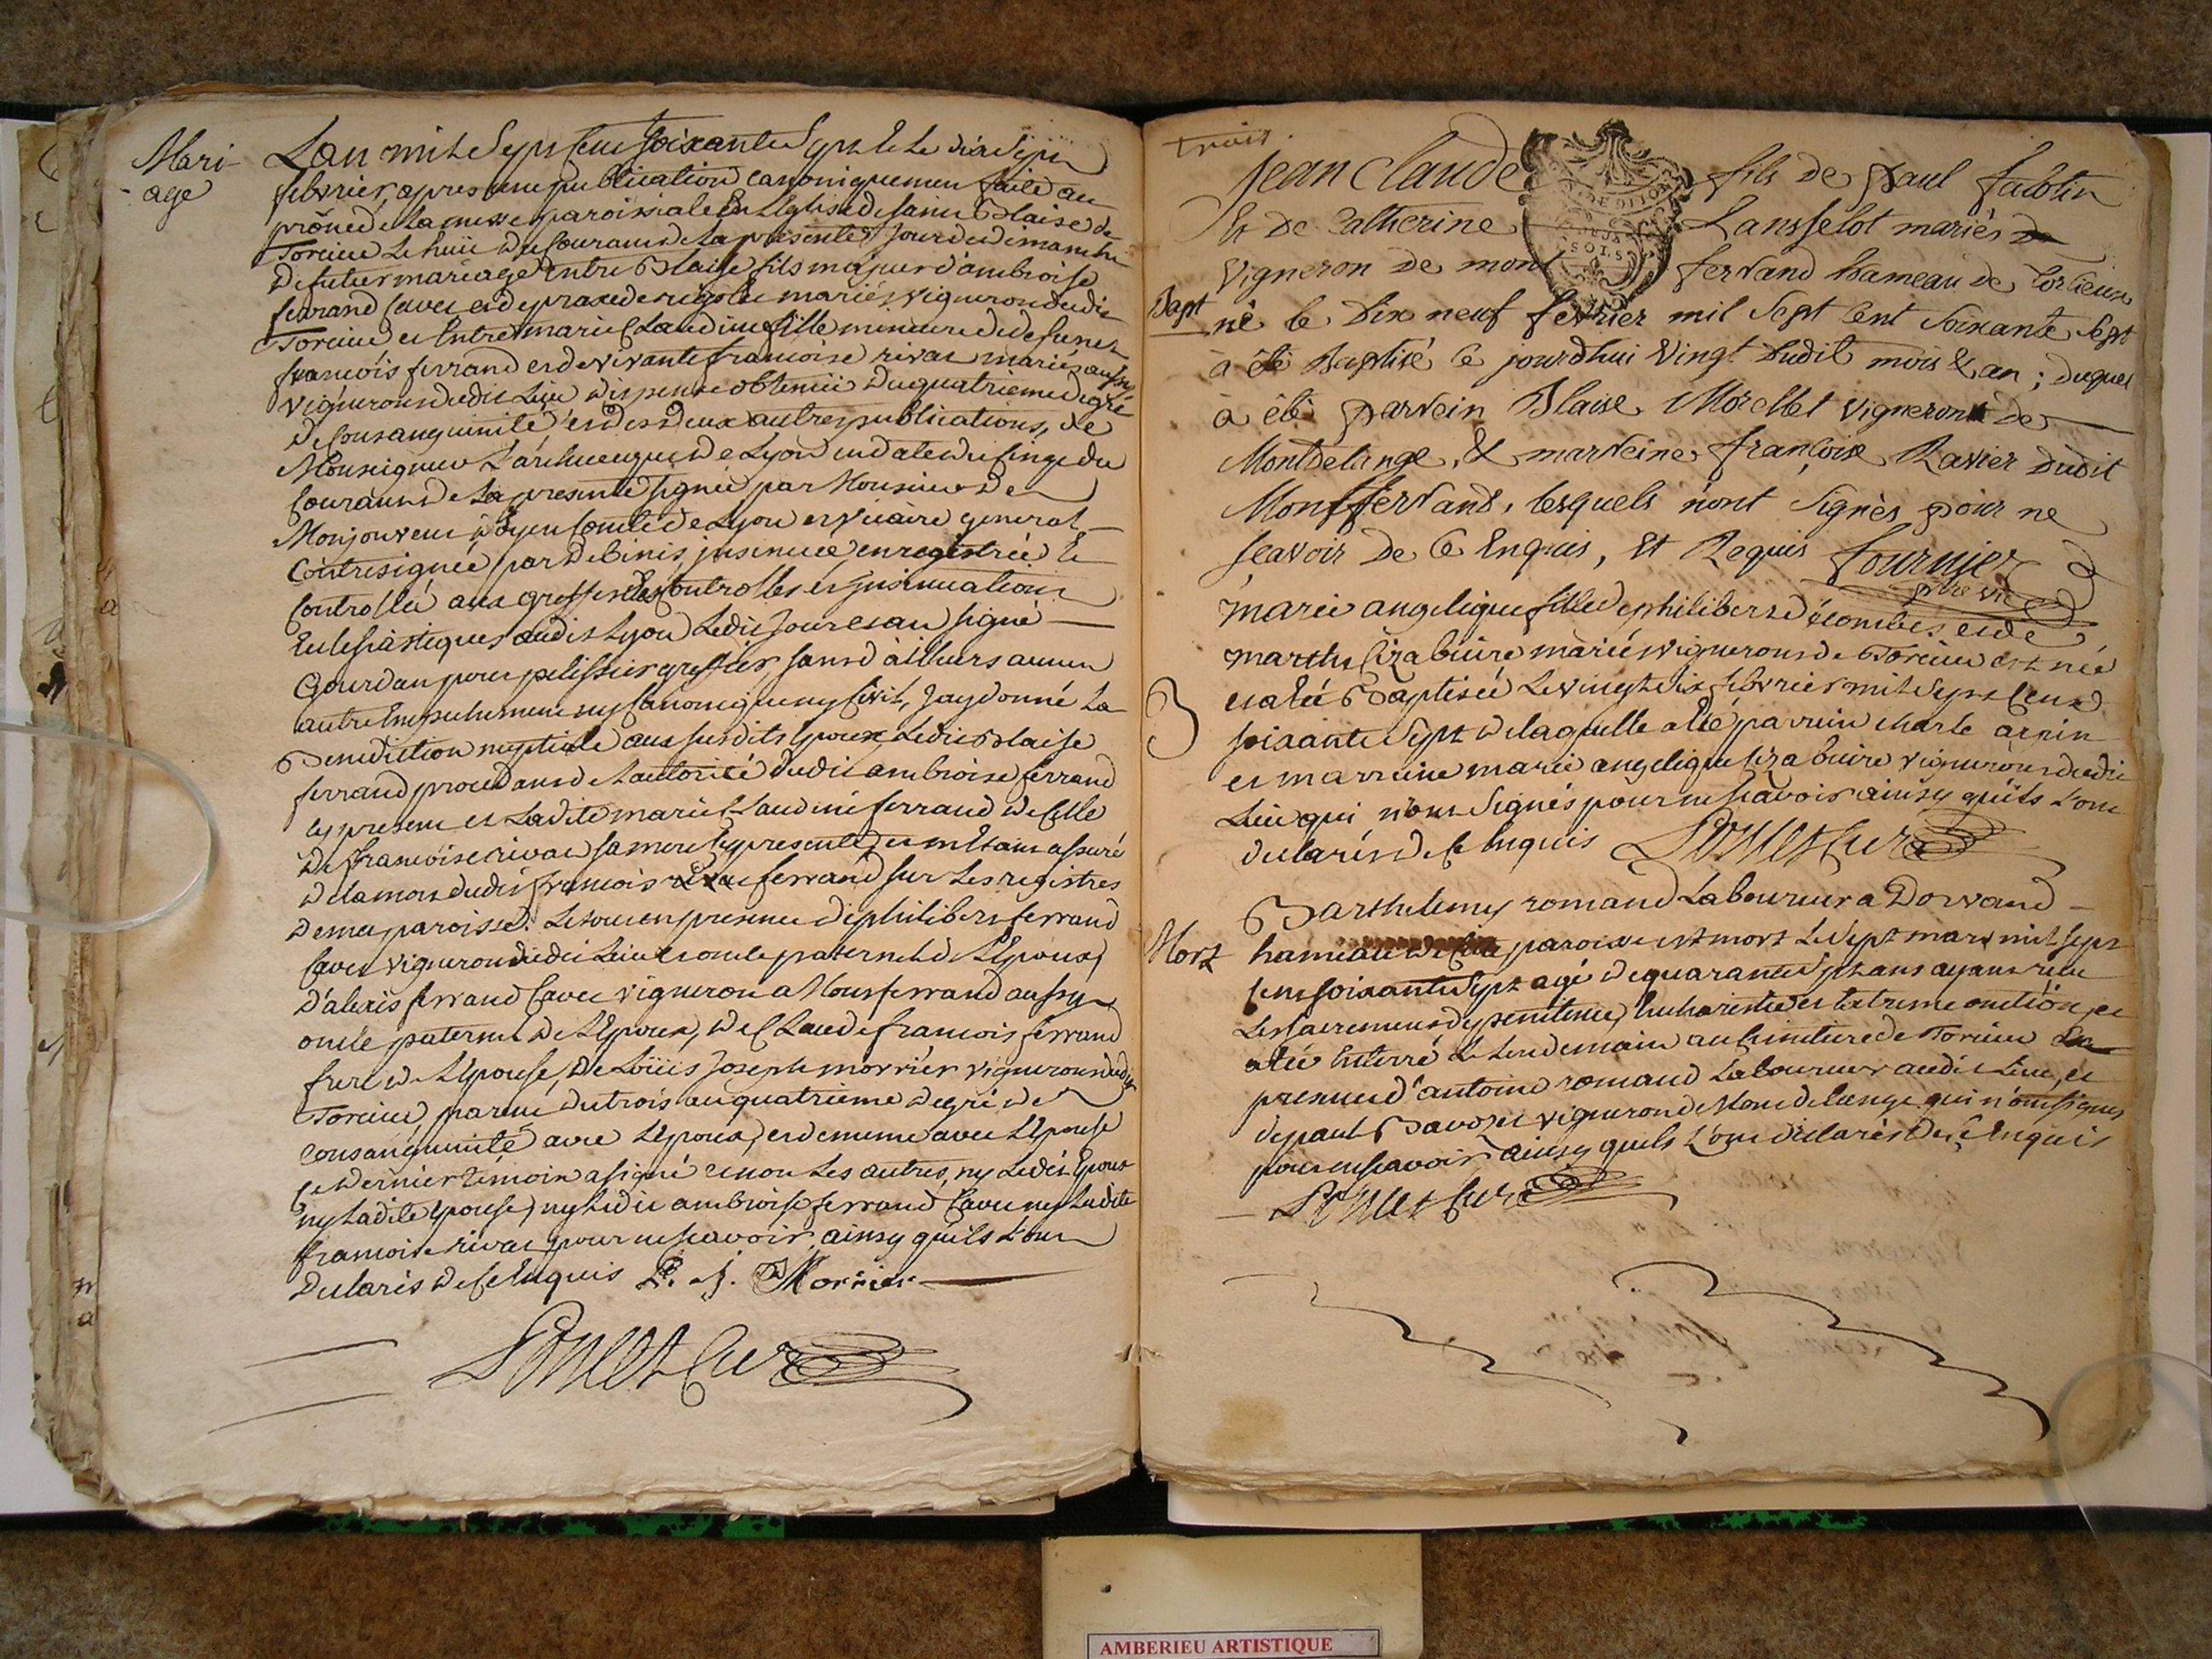 Mari-
age
Lan mil Sept Cent soixante Sept Et Le dix Sept
febvrier, apres une publication canoniquement faite au
prône de La messe paroissiale En L'Eglise de saint Blaise de
Torcieu Le huit du Courant de La presente Jour de dimanche
De futur mariage Entre Blaise fils majeur d'ambroise
ferrand Cavet et de praxede rigollet mariés vignerons dudit
Torcieu et Entre marie Claudine fille mineure de defunct
francois ferrand et de vivante francoise rivat mariés aussy
vignerons dudit Lieu dispense obtenüe du quatrieme degré
de Consanguinité et des deux autres publications, de
Monseigneur L'archeveque de Lyon en date du
Courant de La presente signée par Monsieur De
Monjouvent doyen Comte de Lyon et vicaire general
Contresignée par Debinis, insinuée enregistrée Et
Controllée aux greffes des Controlles et Insinuations
Eclesiastiques dudit Lyon Ledit Jour et an signé
Gourdan pour pelissier greffier, sans d'ailleurs aucun
autre Empechement ny Canonique ny Civil, J'ay donné La
Benediction nuptiale aux susdits Epoux, Ledit Blaise
ferrand procedant de L'autorité dudit ambroise ferrand
Cy present et Ladite marie Claudine ferrand de Celle
De francoise rivat sa mere Cy presente, et m'Etant assuré
de la mort dudit francois ferrand sur Les registres
de ma paroisse. Le tout en presence de philibert ferrand
Cavet vigneron dudit Lieu et oncle paternel de L'Epoux,
D'alexis ferrand Cavet vigneron a Monferrand aussy
oncle paternel de L'Epoux, de Claude francois ferrand
frere de L'Epouse, De Loüis Joseph morrier vigneron dudit
Torcieu, parent du trois au quatrieme degré de
Consanguinité avec L'Epoux, et de meme avec L'Epouse
Ce dernier temoin a signé et non Les autres, ny Ledit Epoux
ny Ladite Epouse, ny Ledit ambroise ferrand Cavet ny Ladite
francoise rivat pour ne scavoir, ainsy qu'ils L'ont
Declarés de Ce Enquis L. J. Morrier
Poncet Curé
trois.
Jean Claude fils de paul Jacolin
Et De Catherine Lansselot mariés
vigneron de mont ferrand hameau de torcieux
Bapt
né le Dix neuf fevrier mil Sept Cent Soixante Sept
à été Baptisé le jourdhui vingt dudit mois & an ; duquel
à été parrein Blaise Morellet vigneron de
Montdelange, & marreine francoise Ravier dudit
Montferrand, lesquels n'ont signés pour ne
scavoir de Ce Enquis, Et Requis fournier
ptre vic
marie angelique fille de philibert décombes et de
marthe Cizabuire mariés vignerons de Torcieu est née
et a été Baptisée Le vingt six febvrier mil Sept Cent
soixante Sept de laquelle a été parrein charle arnin
et marreine marie angelique Cizabuire vignerons dudit
Lieu qui n'ont Signés pour ne scavoir ainsy qu'ils L'ont
declarés de Ce Enquis Poncet Curé
Barthelemy romand Laboureur a Dorvand
Mort
hameau de paroisse est mort Le Sept mars mil Sept
Cent soixante Sept agé de quarante Sept ans ayant receu
Les Sacrements de penitence, Eucharistie et Extreme onction, et
a été Enterré Le Lendemain au Cimitiere de Torcieu En
presence d'antoine romand Laboureur audit Lieu, et
de paul Savozet vigneron de Mont de lange qui n'ont signés
pour ne scavoir ainsy qu'ils L'ont declarés de Ce Enquis
Ponce t Curé
AMBERIEU ARTISTIQUE